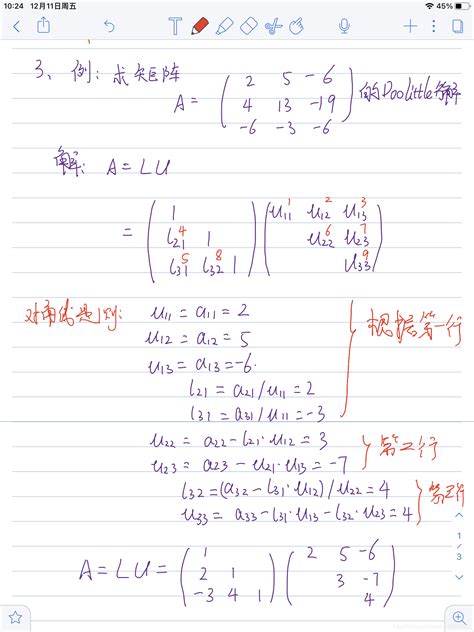 10:24 12月11日周五
45%
3、例: 求矩阵 A = ( 2 5 -6
4 13 -19
-6 -3 -6 ) 的Doolittle分解
解: A = LU
= ( 1
l21 4 1
l31 5 l32 8 1 ) ( u11 1 u12 2 u13 3
u22 6 u23 7
u33 9 )
u11 = a11 = 2
u12 = a12 = 5
u13 = a13 = -6.
l21 = a21/u11 = 2
l31 = a31/u11 = -3
根据第一行
u22 = a22 - l21·u12 = 3
u23 = a23 - u21·u13 = -7
第二行
l32 = (a32 - l31·u12)/u22 = 4
u33 = a33 - l31·u13 - l32·u23 = 4
第三行
A = LU = ( 1
2 1
-3 4 1 ) ( 2 5 -6
3 -7
4 )
1
3